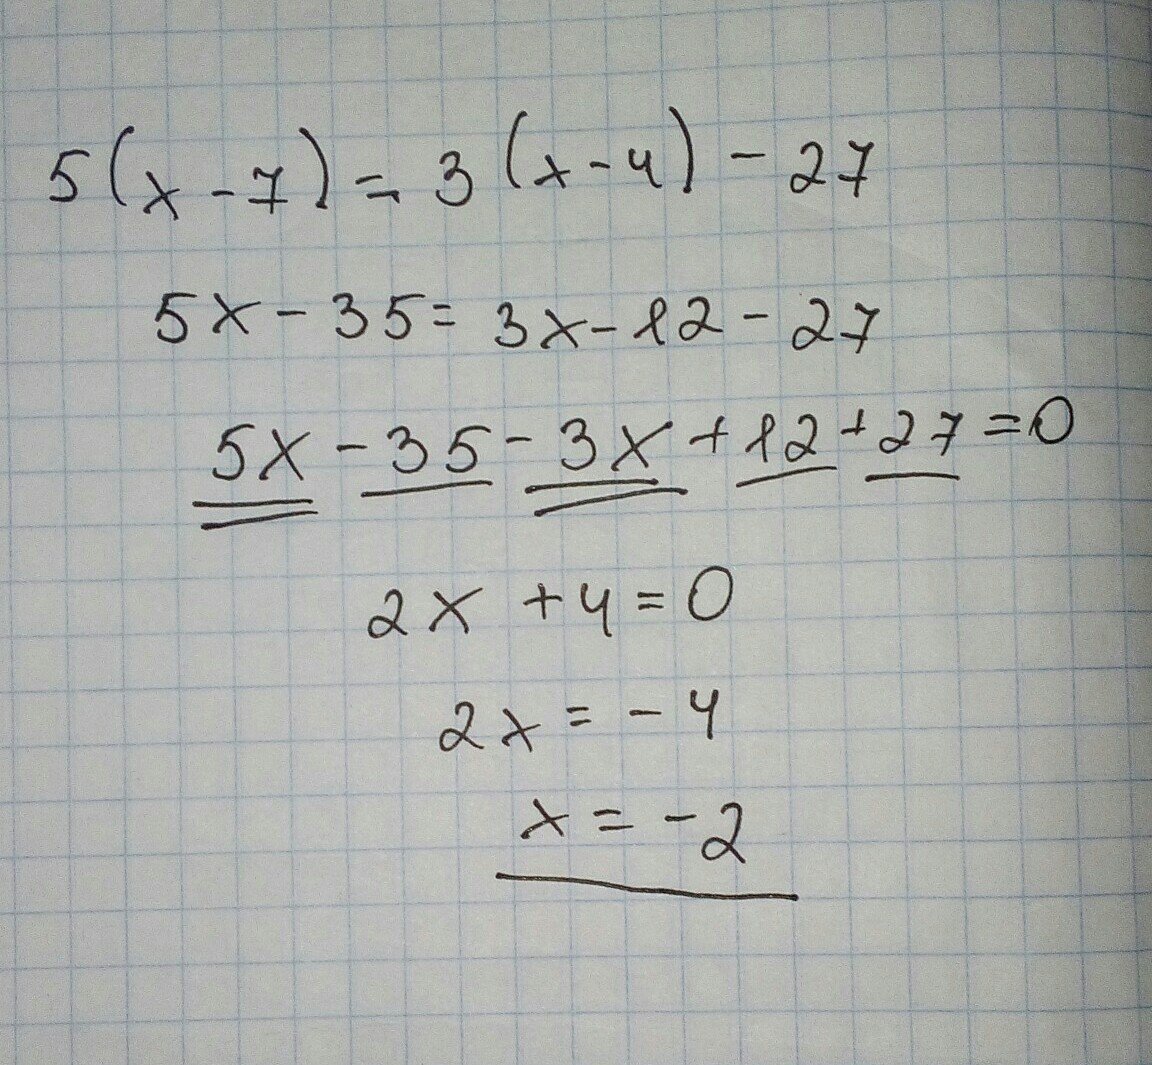 5(x-7)=3(x-4)-27
5x-35=3x-12-27
5x-35-3x+12+27=0
2x+4=0
2x=-4
x=-2